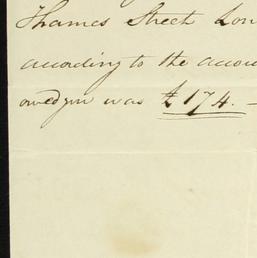 Thames Street Lon
according to the accou
owed you was £174. -